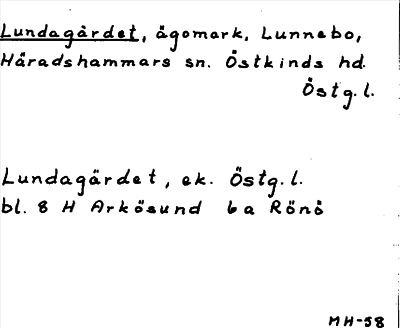 Lundagärdet, ägomark, Lunnebo,
Häradshammars sn. Östkinds hd.
Östg. l.
Lundagärdet, ek. Östg. l.
bl. 8 H Arkösund 6a Rönö
MH-58